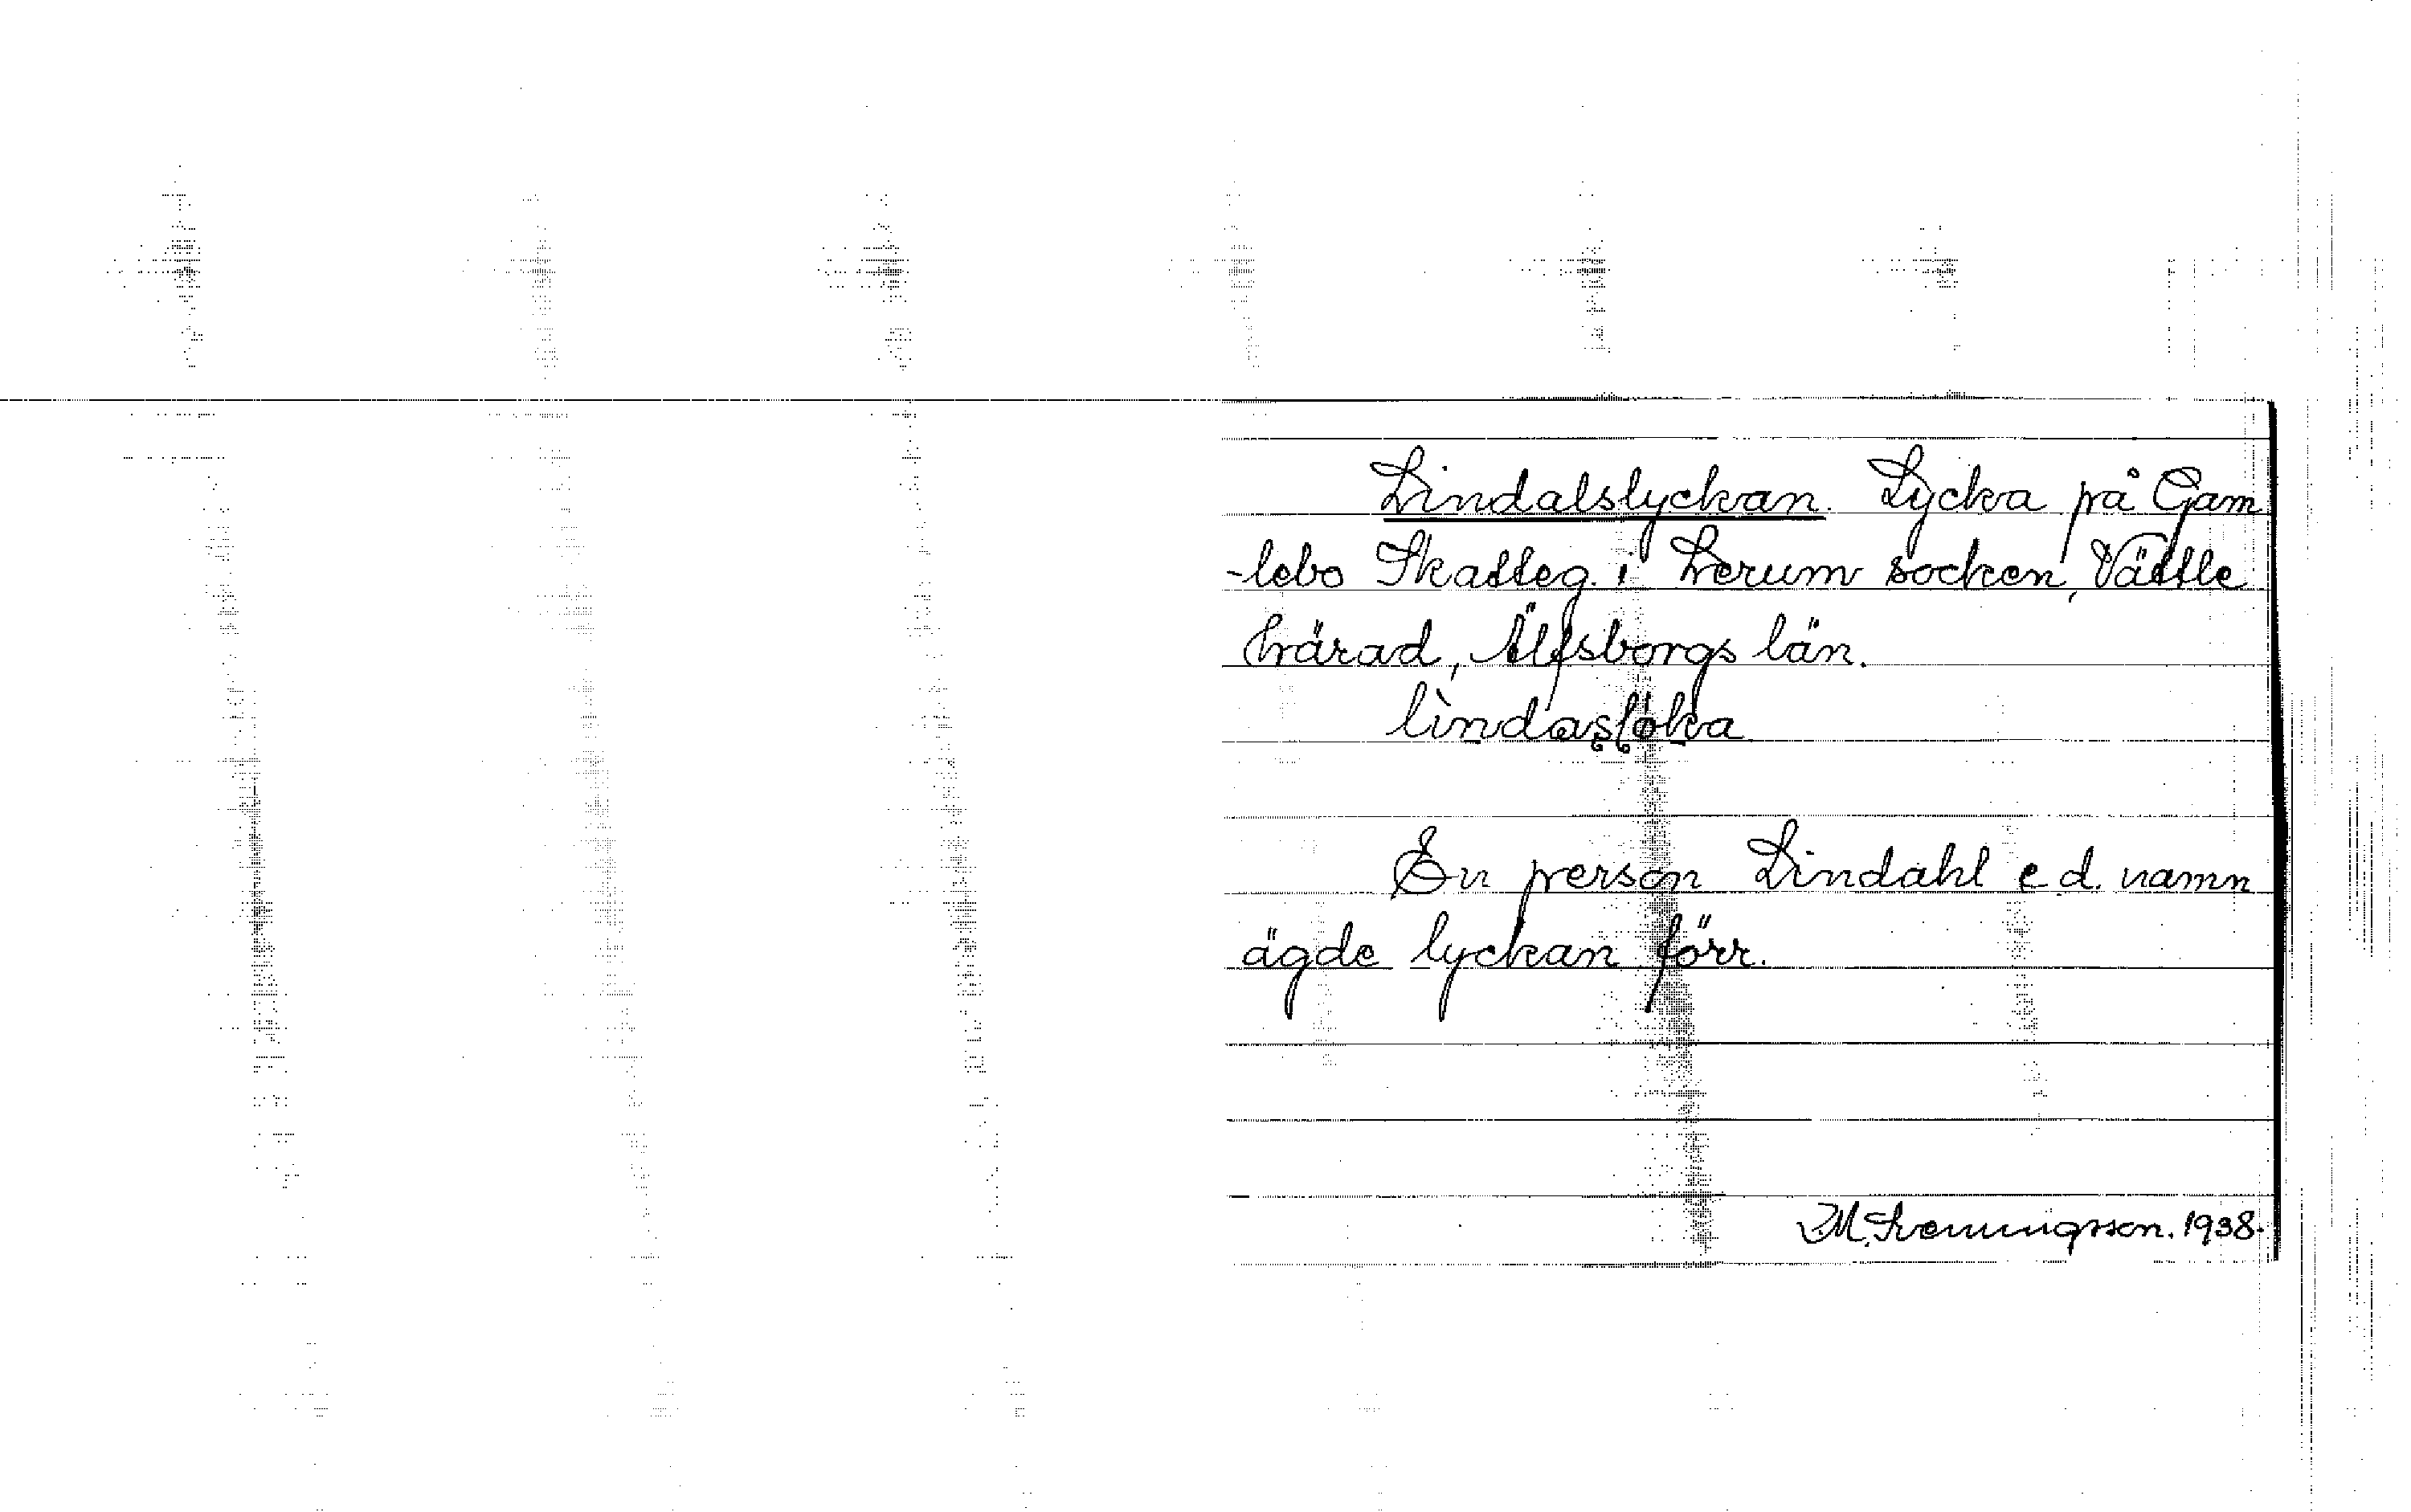 Lindalslyckan. Lycka på Gam
-lebo Skatteg. i Lerum socken, Vättle
härad, Älfsborgs län.
lìndasløka
En person Lindahl e.d. namn
ägde lyckan förr.
M. Svenningsson. 1938.